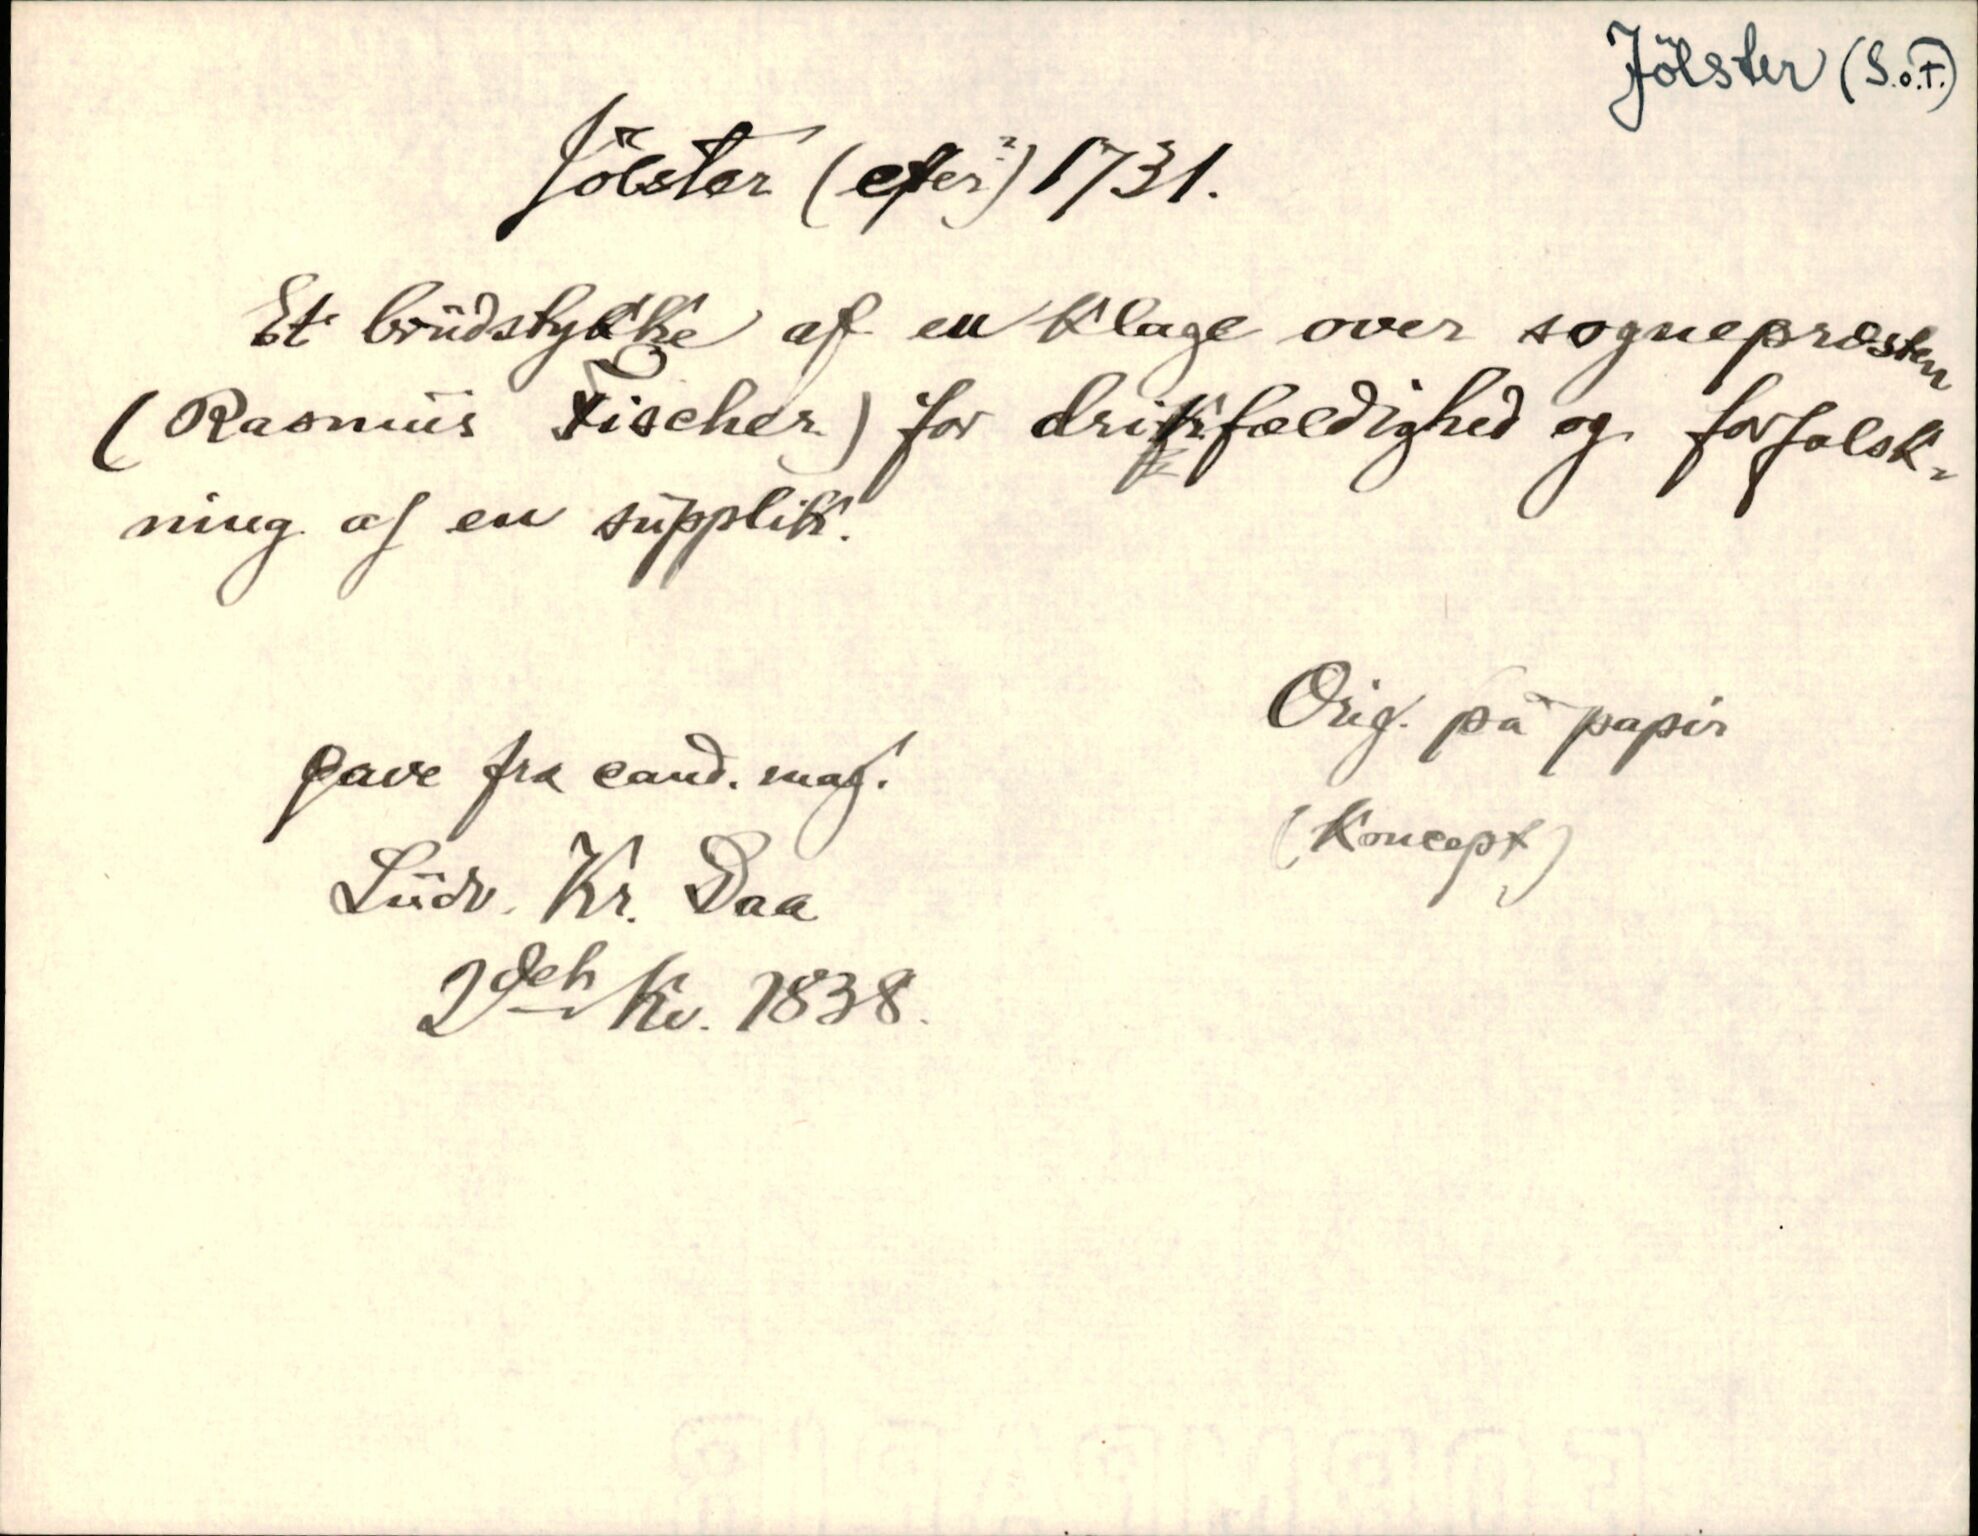 Jölster (S.o.F.)
Jölster (efter?) 1731.
Et brudstykke af en klage over sognepræsten
(Rasmus Fischer) for drikfældighed og forfalsk-
ning af en supplik.
Orig. på papir
(Koncept)
gave fra cand. mag.
Ludv. Kr. Daa
2den Kv. 1838.